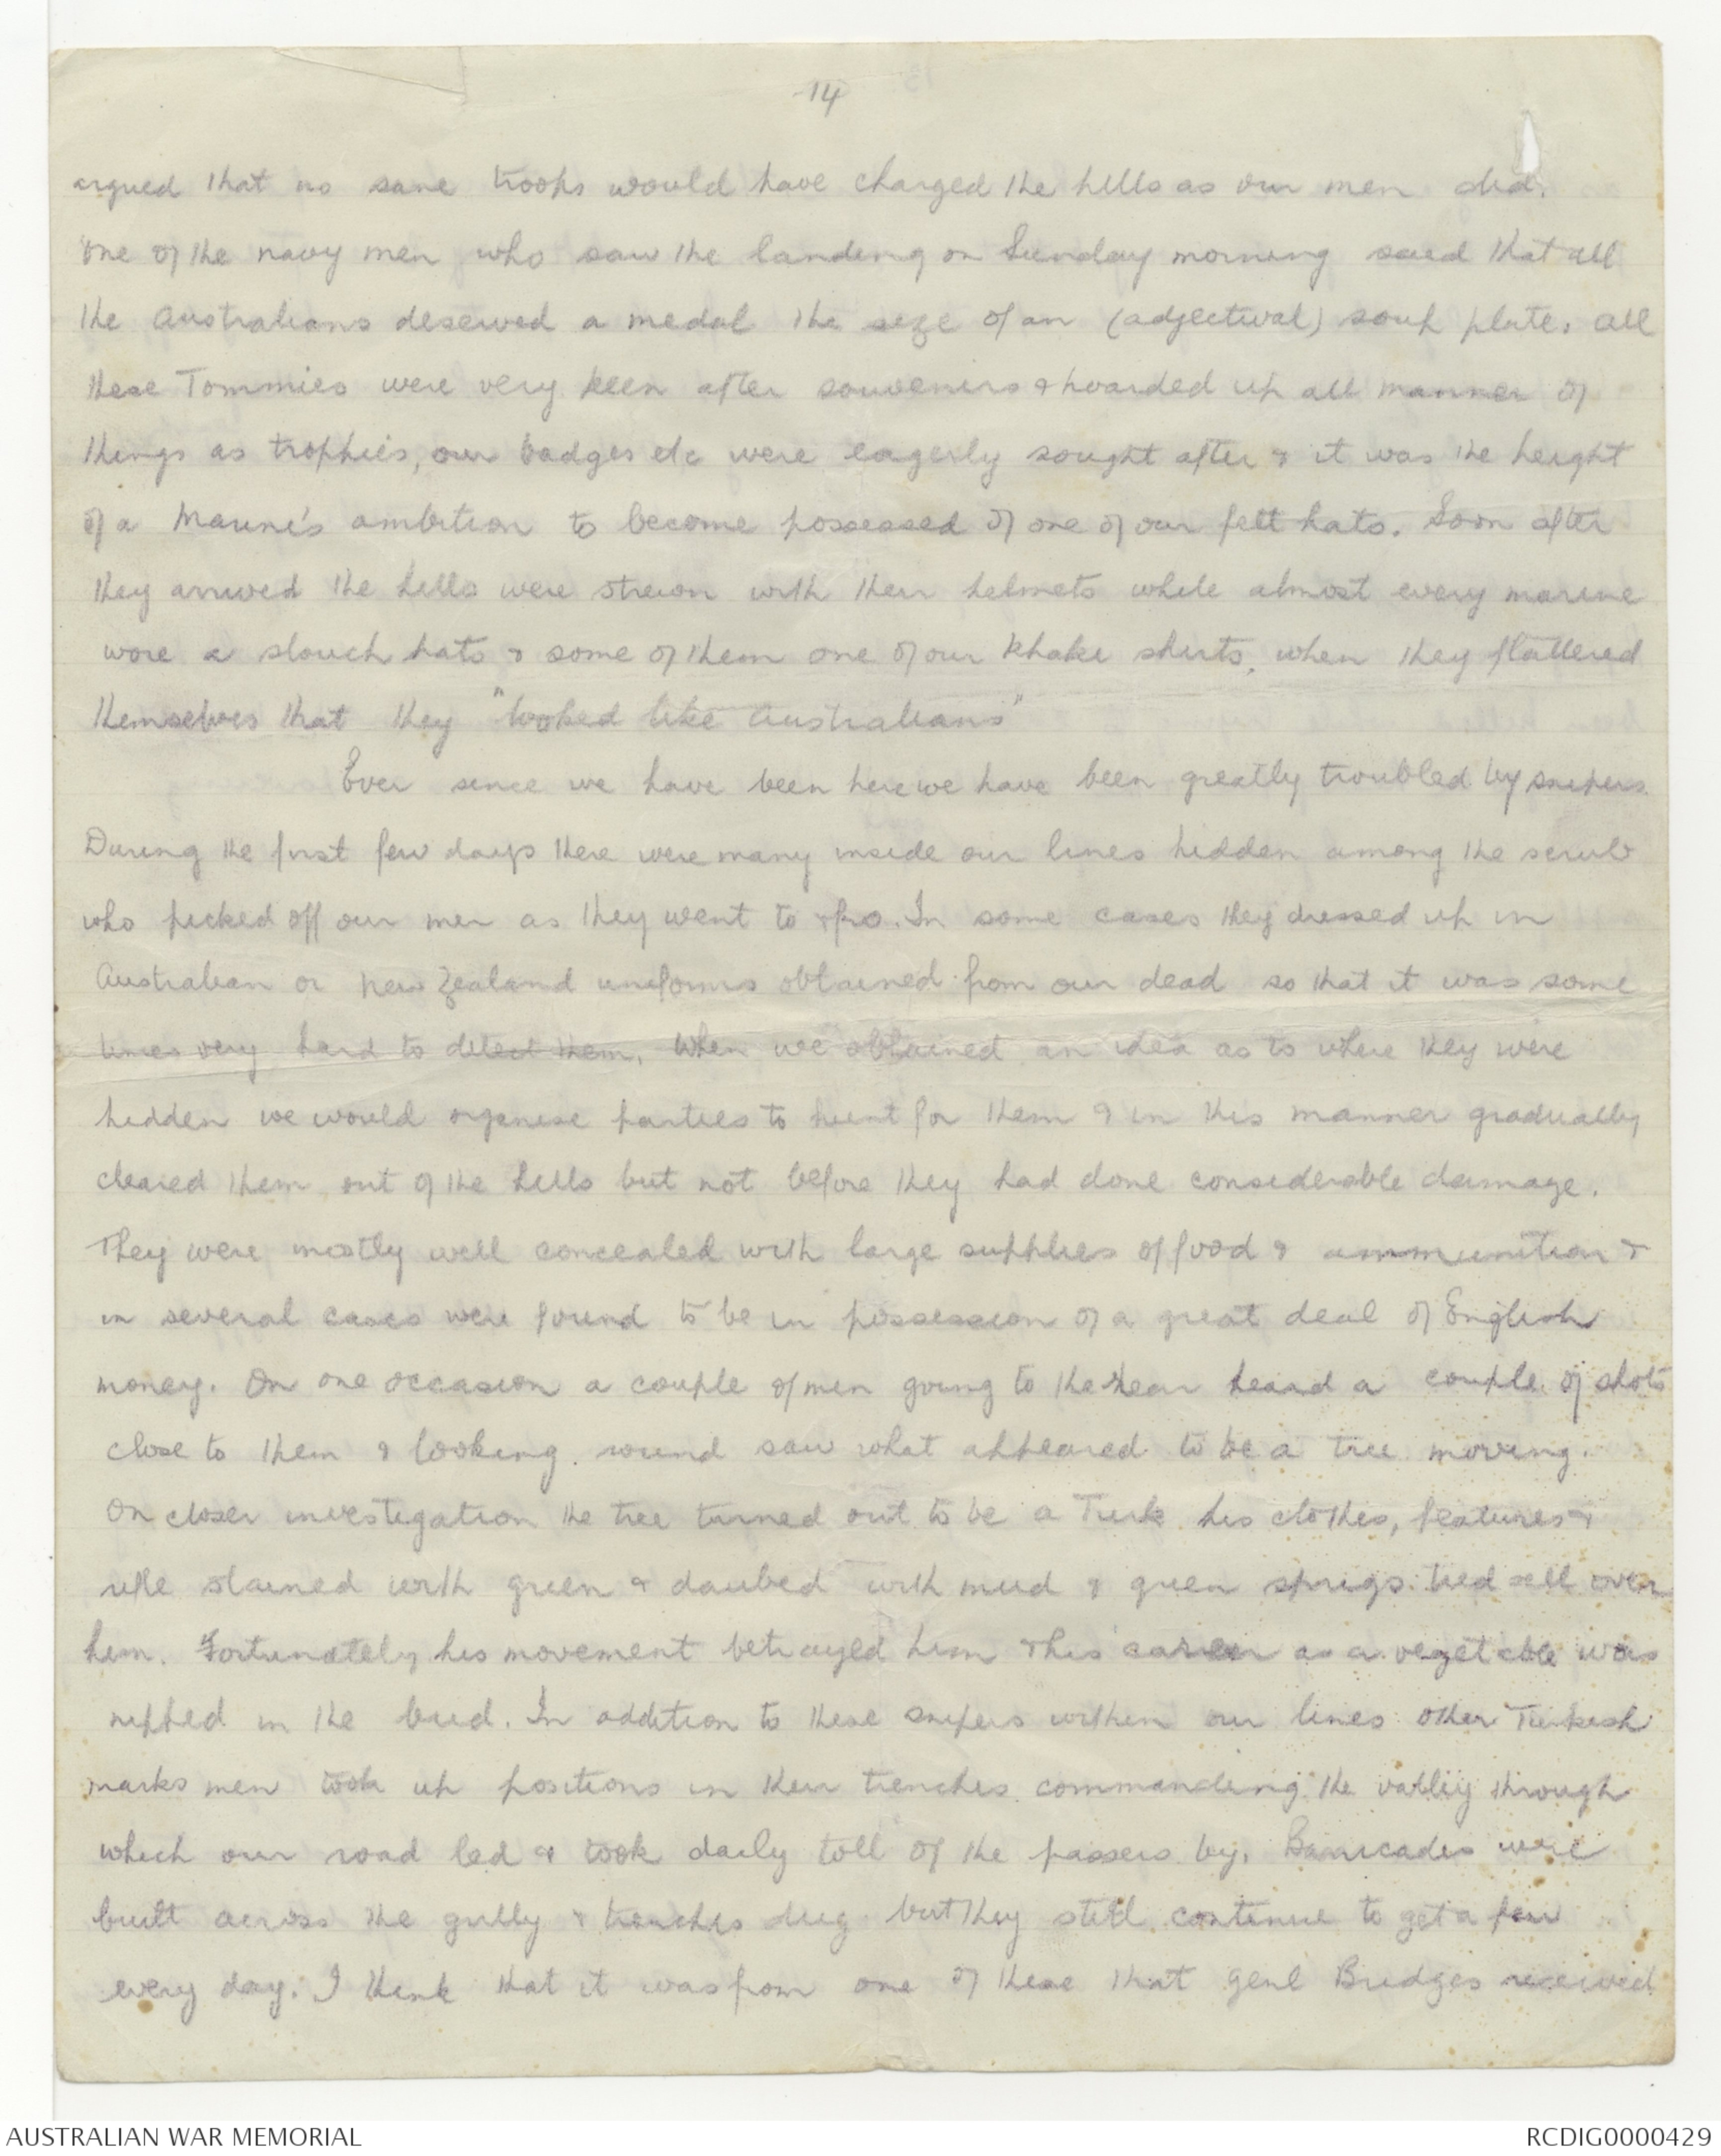 14
argued that no sane troops would have charged the hills as our men did.
One of the navy men who saw the landing on Sunday morning said that all
the Australians deserved a medal the size of an (adjectival) soup plate. All
these Tommies were very keen after souvenirs & hoarded up all manner of
things as trophies, our badges etc were eagerly sought after & it was the height
of a Marine's ambition to become possessed of one of our felt hats. Soon after
they arrived the hills were strewn with their helmets while almost every marine
wore a slouch hats & some of them one of our khaki shirts, when they flattered
themselves that they "looked like Australians"
Ever since we have been here we have been greatly troubled by snipers.
During the first few days there were many inside our lines hidden among the scrub
who picked off our men as they went to & fro. In some cases they dressed up in
Australian or New Zealand uniforms obtained from our dead so that it was some
times very hard to detect them. When we obtained an idea as to where they were
hidden we would organise parties to hunt for them & in this manner gradually
cleared them out of the hills but not before they had done considerable damage.
They were mostly well concealed with large supplies of food & ammunition &
in several cases were found to be in possession of a great deal of English
money. On one occasion a couple of men going to the rear heard a couple of shots
close to them & looking round saw what appeared to be a tree moving.
On closer investigation the tree turned out to be a Turk his clothes, features &
rifle stained with green & daubed with mud & green sprigs tied all over
him. Fortunately his movement betrayed him & his career as a vegetable was
nipped in the bud. In addition to these snipers within our lines other Turkish
marks men took up positions in their trenches commanding the valley through
which our road led & took daily toll of the passers by. Barricades were
built across the gully & trenches dug but they still continue to get a few
every day. I think that it was from one of these that Genl Bridges received
AUSTRALIAN WAR MEMORIAL
RCDIG0000429